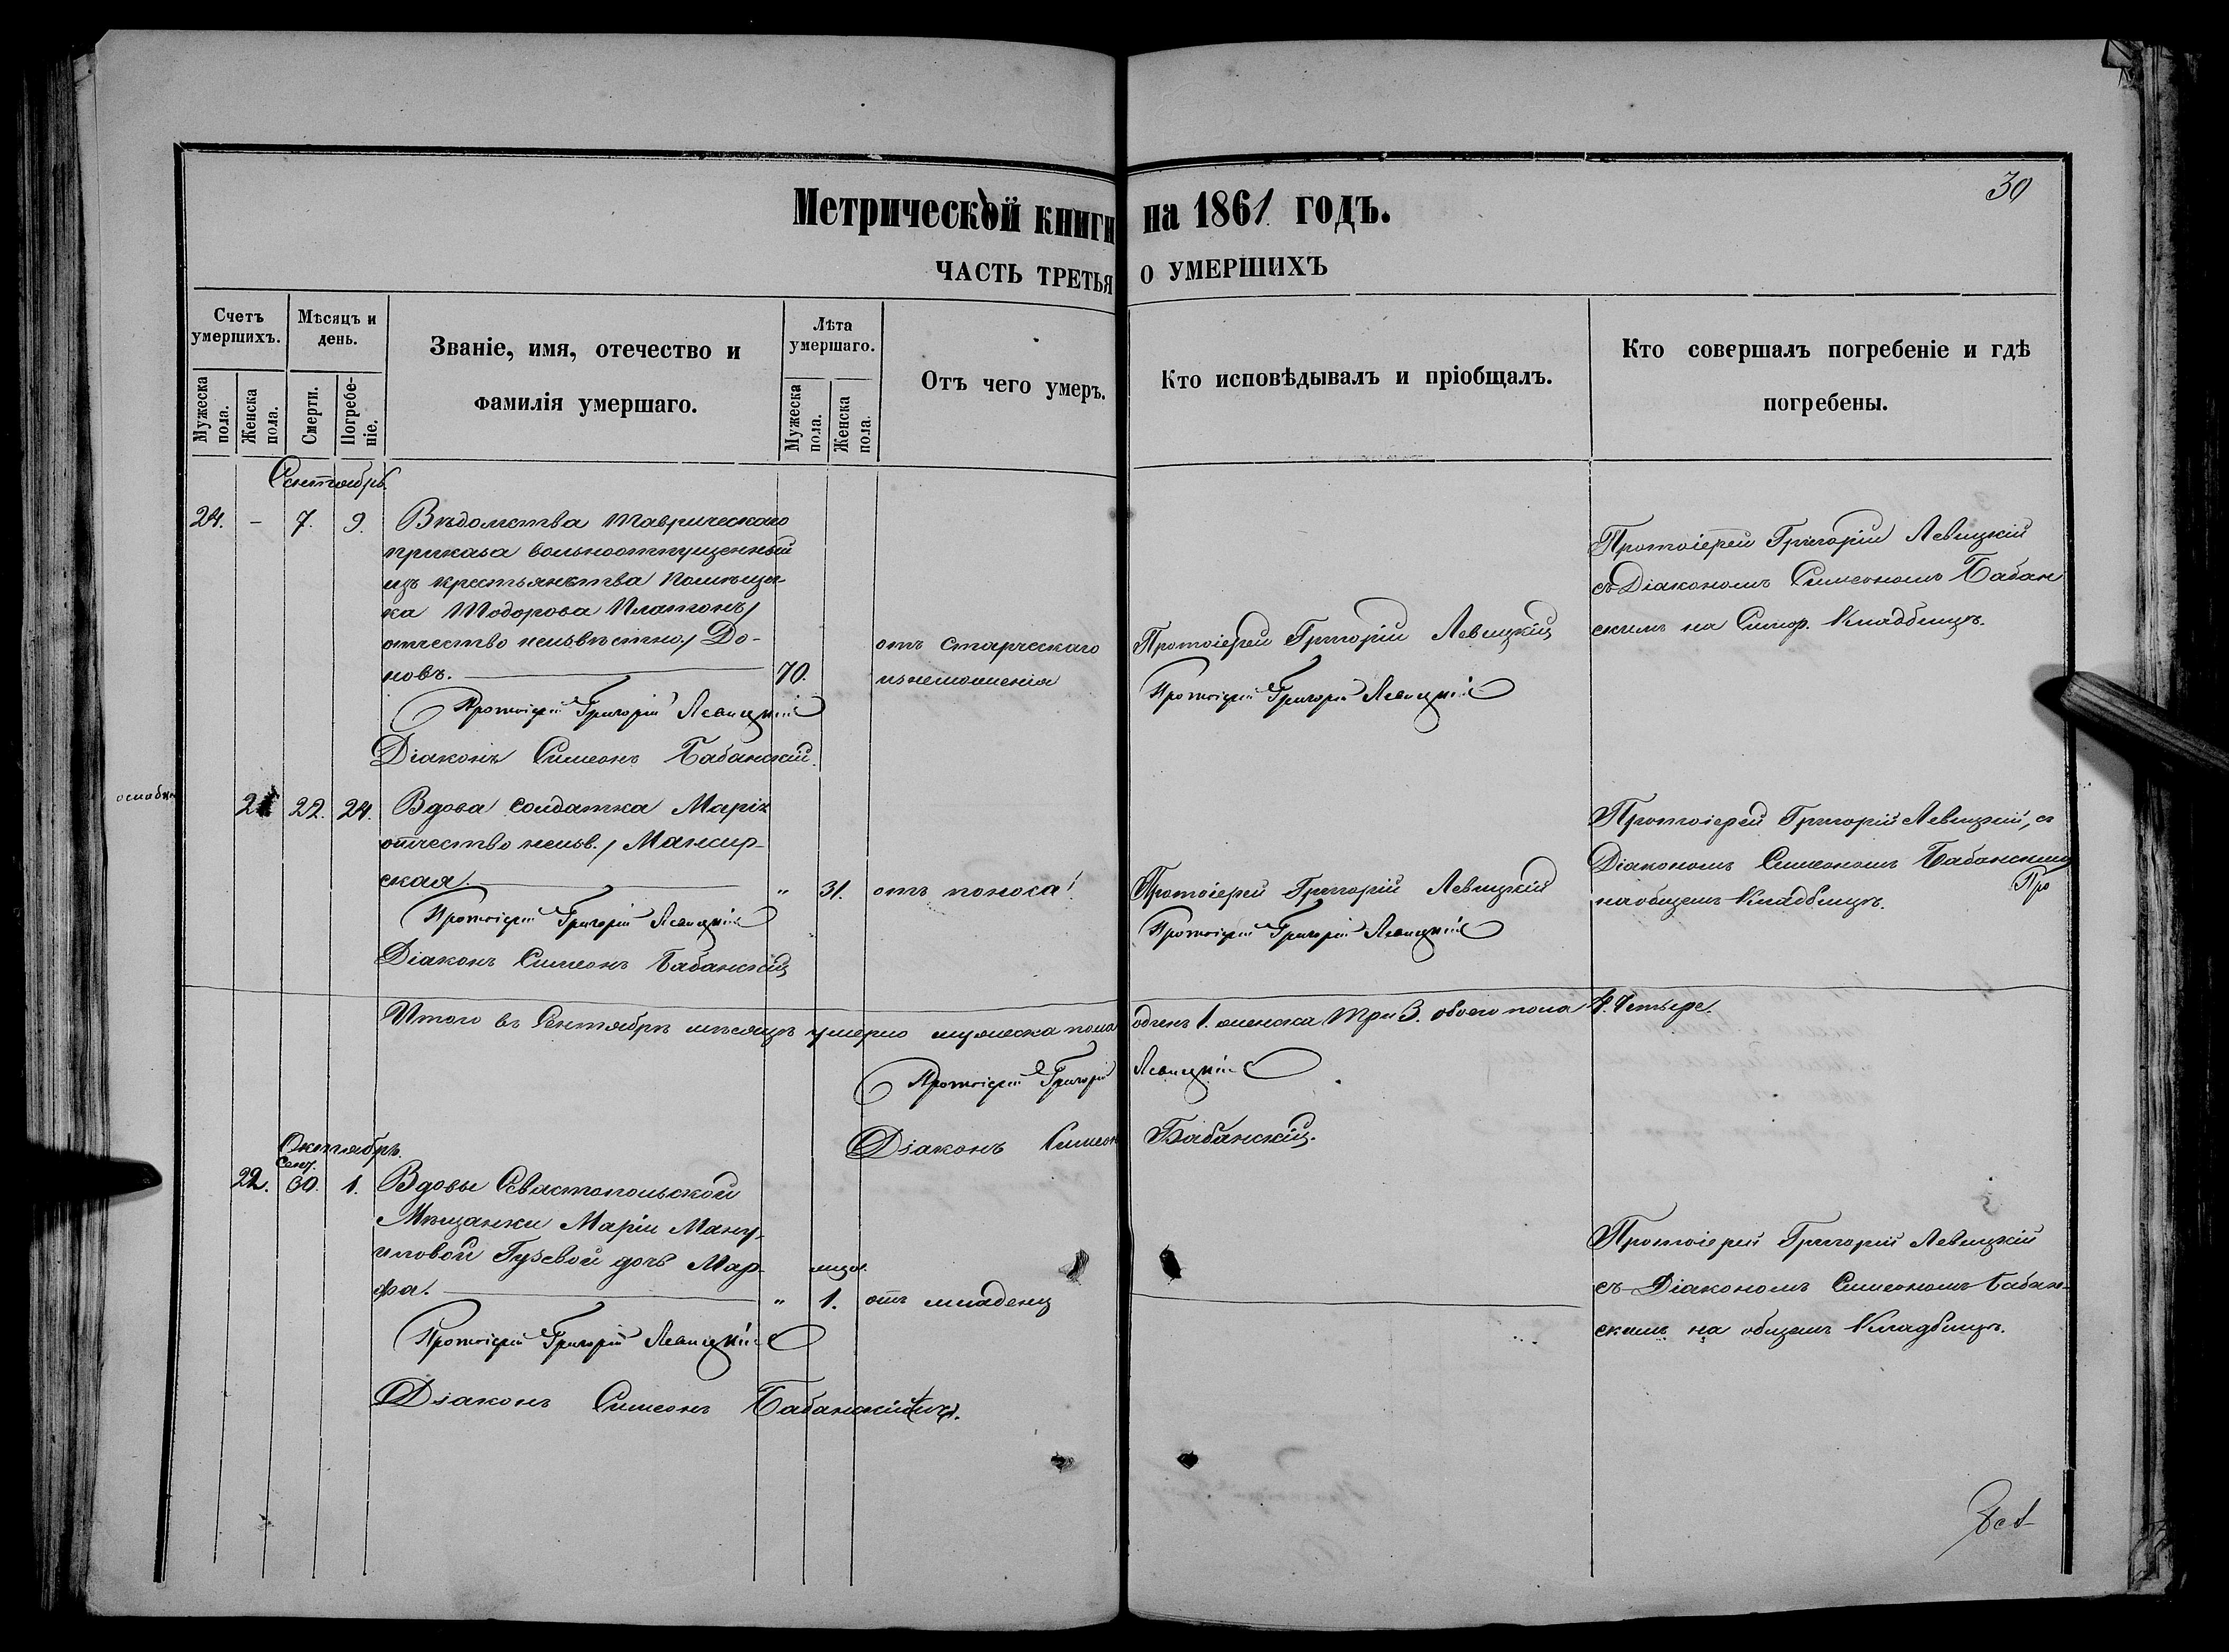 30
Метрической книги на 1861 годъ.
ЧАСТЬ ТРЕТЬЯ О УМЕРШИХЪ
Счетъ умершихъ.
Мужеска пола.
Женска пола.
Мѣсяцъ и день.
Смерти.
Погребеніе.
Званіе, имя, отечество и
фамилія умершаго.
Лѣта умершаго.
Мужеска пола.
Женска пола.
Отъ чего умеръ.
Кто исповѣдывалъ и пріобщалъ.
Кто совершалъ погребеніе и гдѣ
погребены.
Сентябрь.
24. – 7. 9. Вѣдомства Таврическаго
приказа вольноотпущенный
изъ крестьянства помѣщи-
ка Тодорова Платонъ /
отчество неизвѣстно / До-
новъ. 70.
отъ старческаго
изнеможенія
Протоіерей Григорій Левицкій
Протоіерей Григорій Левицкій
Протоіерей Григорій Левицкій
съ Діакономъ Симеономъ Бабан
скимъ на Симф. Кладбищѣ.
Протоіерей Григорій Левицкій
Діаконъ Симеонъ Бабанскій.
21 22. 24. Вдова солдатка Марія
отчество неизв. / Мансир-
ская. " 31. отъ поноса!
Протоіерей Григорій Левицкій
Протоіерей Григорій Левицкій
Протоіерей Григорій Левицкій, съ
Діакономъ Симеономъ Бабанскимъ
на общемъ Кладбищѣ.
Про
Протоіерей Григорій Левицкій
Діаконъ Симеонъ Бабанскій
Итого въ Сентябрѣ мѣсяцѣ умерло мужеска пола одинъ 1. женска три 3. обоего пола 4. Четыре.
Протоіерей Григорій Левицкій
Діаконъ Симеонъ Бабанскій.
Октябрь.
Сент.
22. 30. 1. Вдовы Севастопольской
Мѣщанки Маріи Ману-
иловой Гузевой дочь Мар-
фа. " 1. отъ младенч
Протоіерей Григорій Левицкій
съ Діакономъ Симеономъ Бабан-
скимъ на общемъ Кладбищѣ.
Протоіерей Григорій Левицкій
Діаконъ Симеонъ Бабанскій